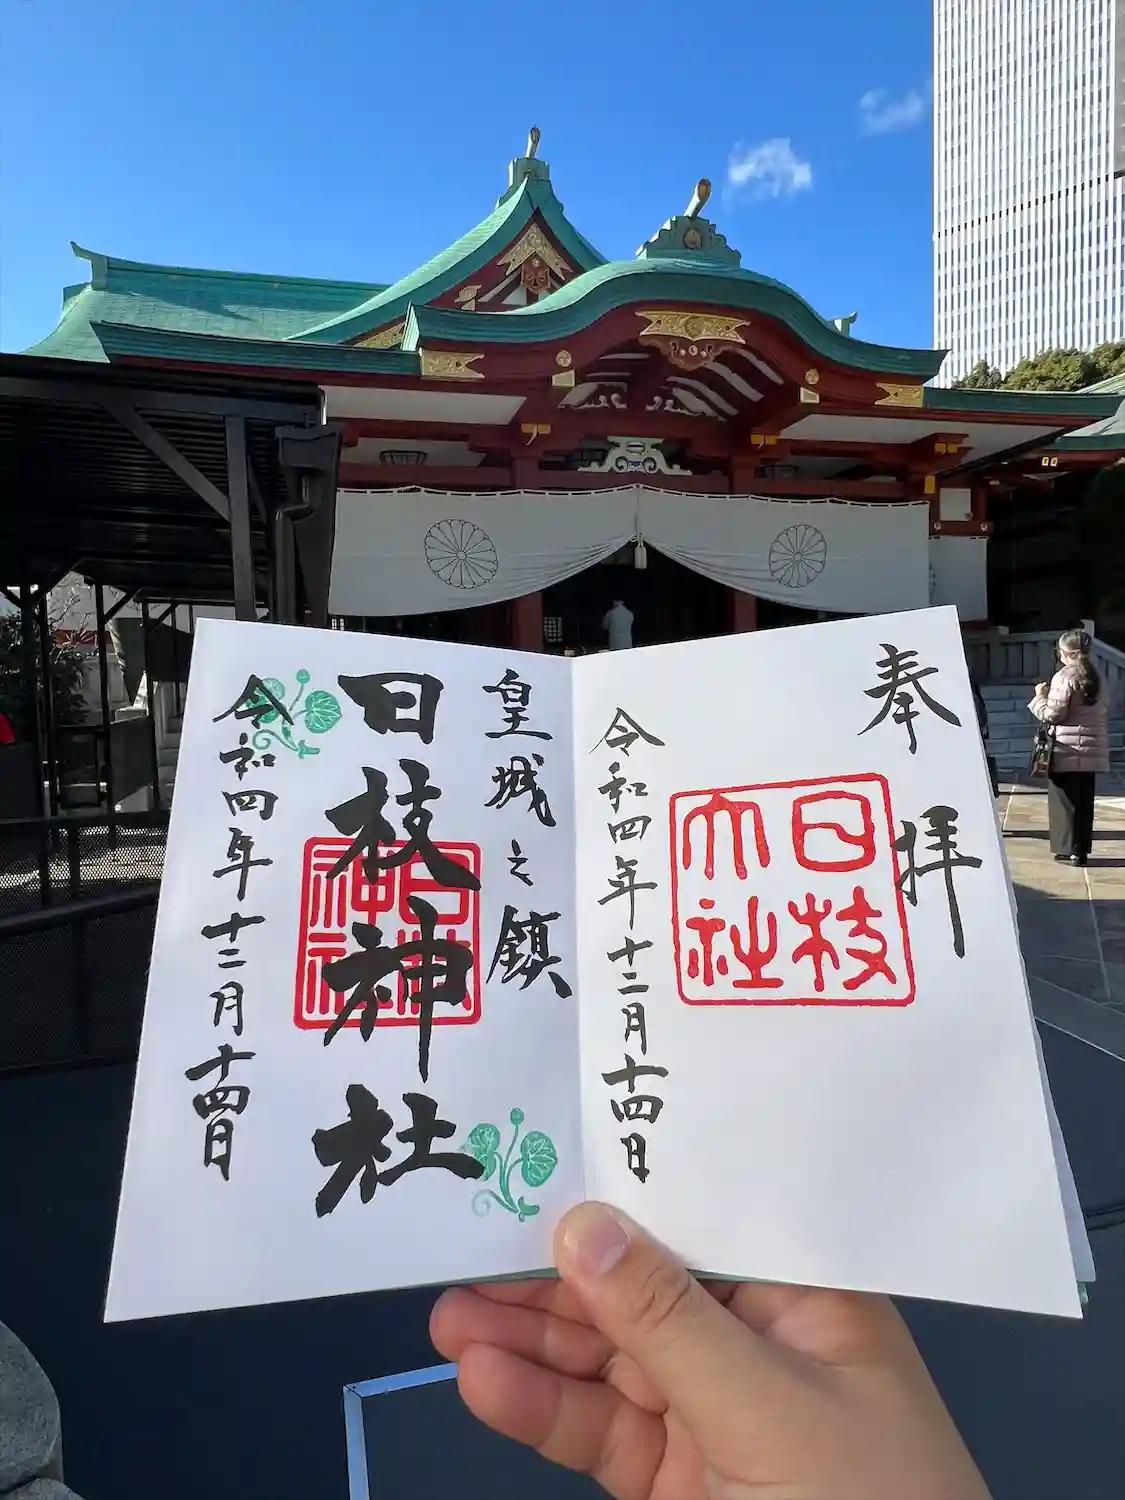 奉拝
日枝
大社
令和四年十二月十四日
皇城之鎮
日枝神社
日枝
神社
令和四年十二月十四日